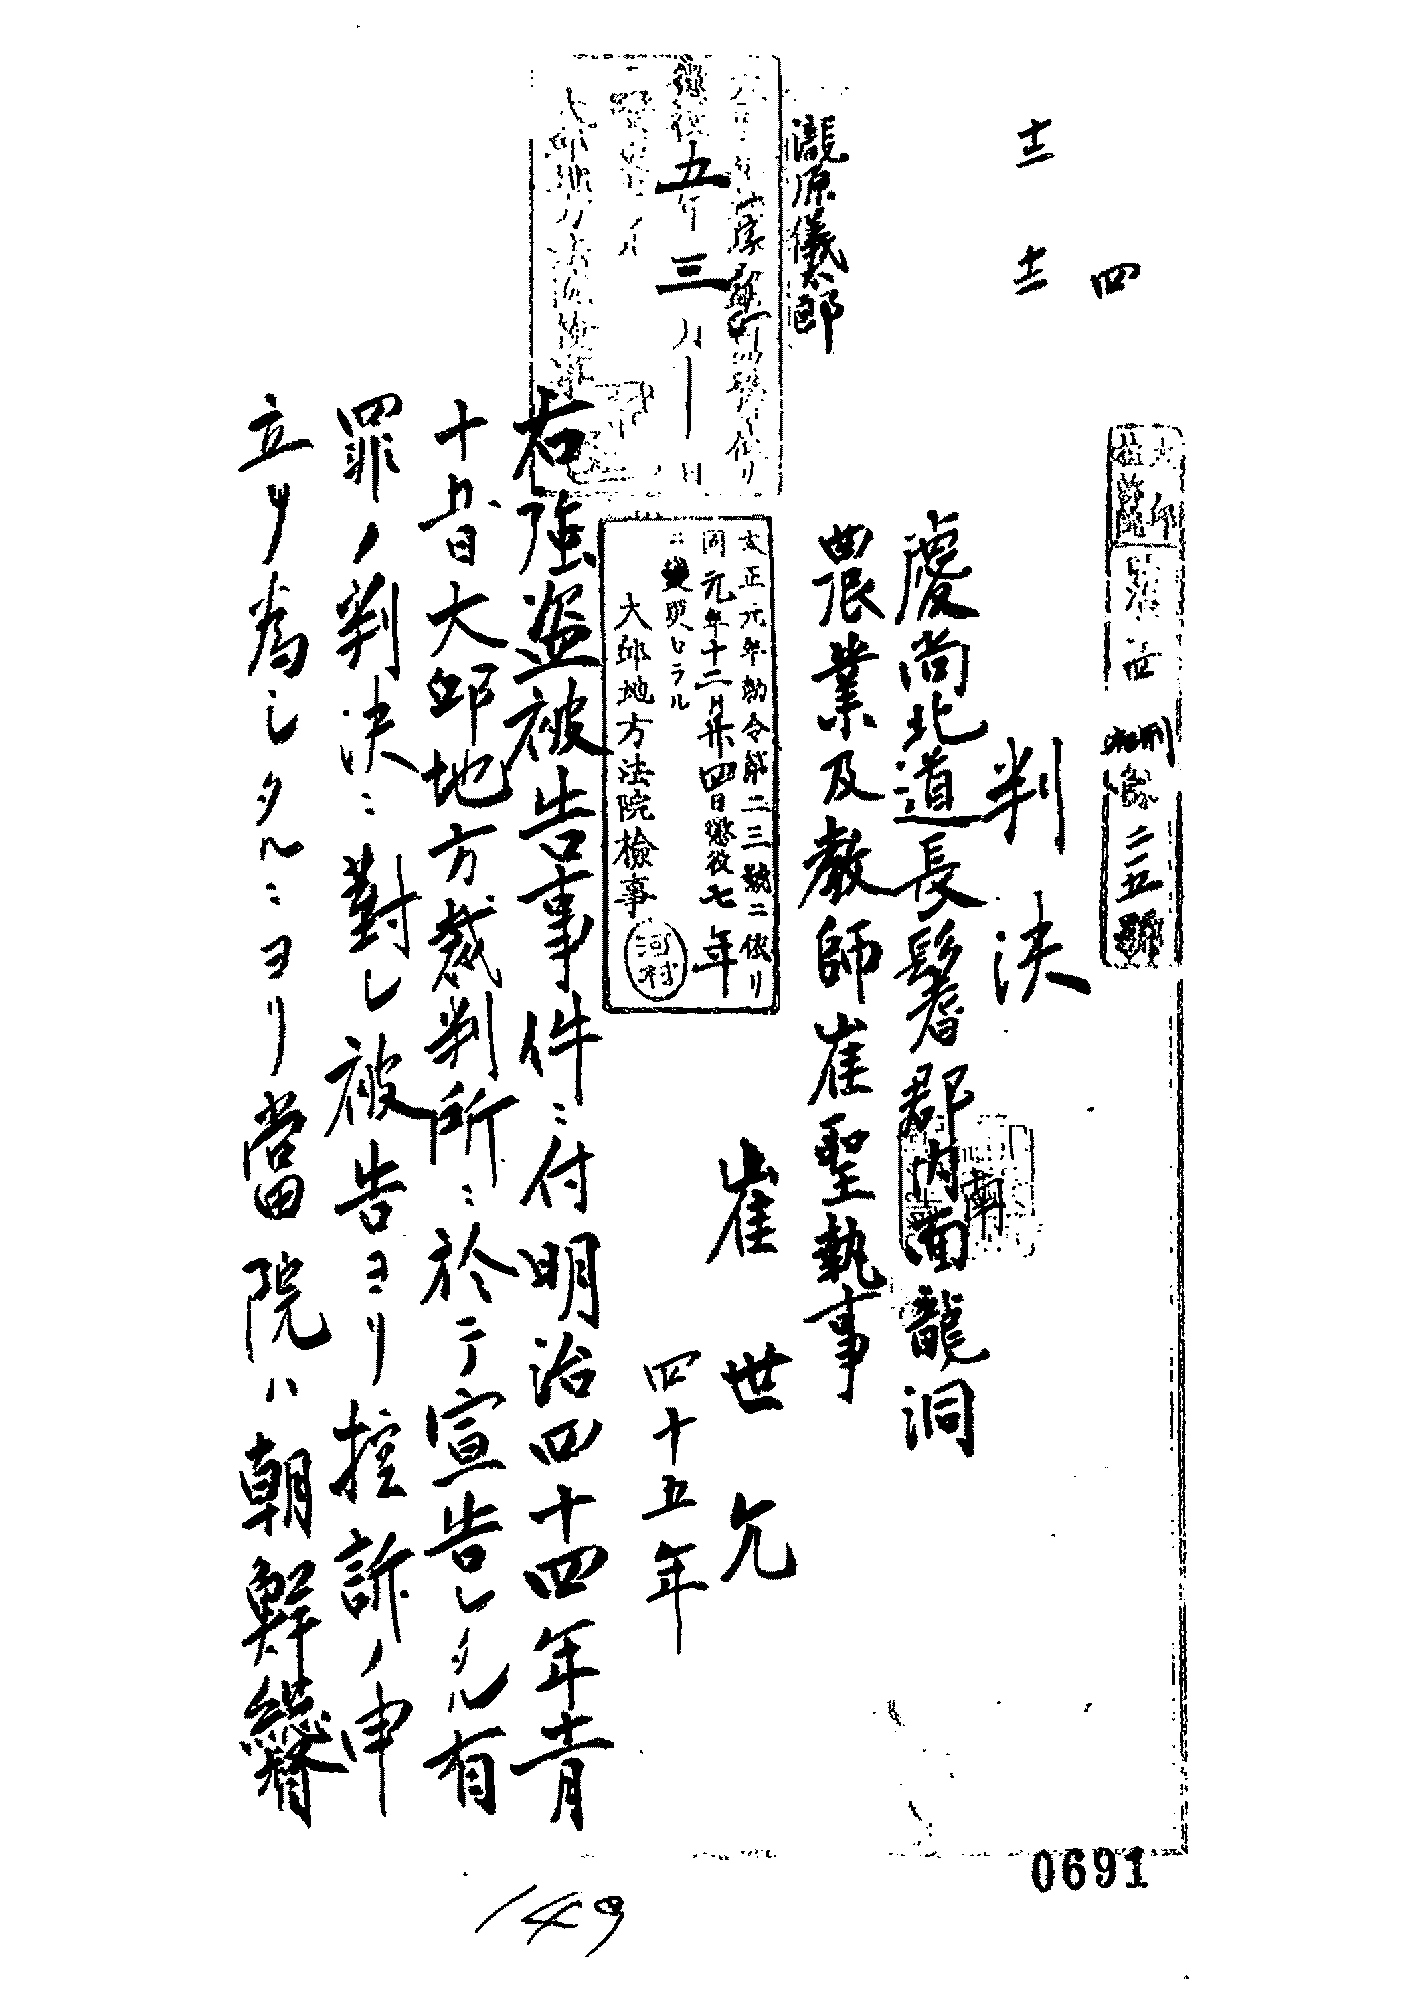 四
十二
十二
判決
慶尚北道長鬐郡内面龍洞
農業及教師崔聖執事
崔世允
四十五年
瀧原儀太郎
懲役五年三月 日
大邱地方法院檢事
大正元年勅令第二三號ニ依リ
同元年十二月廿四日懲役七年
ニ變更セラル
大邱地方法院檢事
河村
右強盗被告事件ニ付明治四十四年十一月
十五日大邱地方裁判所ニ於テ宣告シタル有
罪ノ判決ニ對シ被告ヨリ控訴ノ申
立ヲ為シタルニヨリ當院ハ朝鮮總督
0691
149